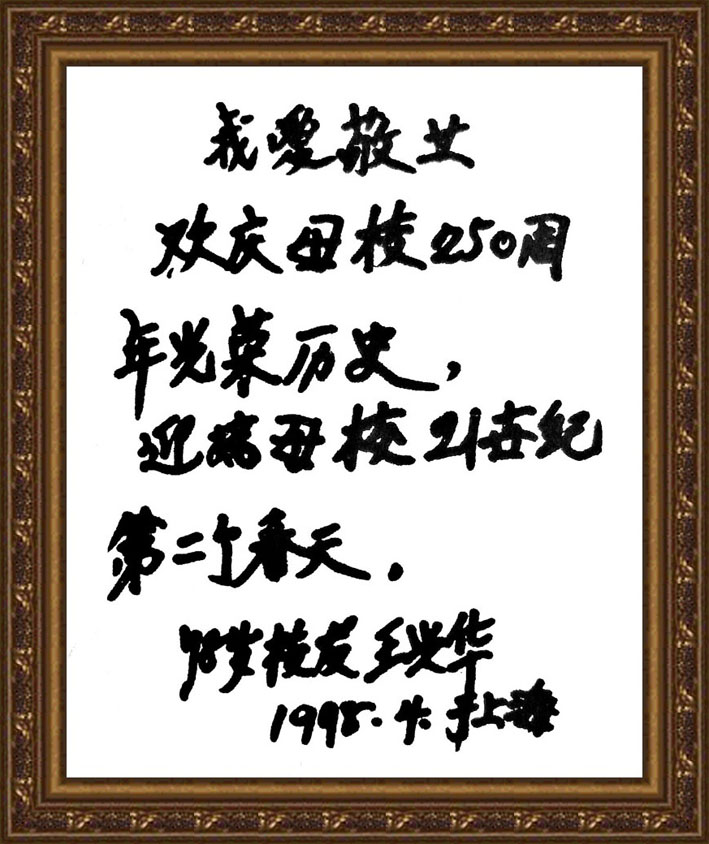 我愛敬业
欢庆母校250周
年光荣历史，
迎接母校21世纪
第二个春天．
78岁校友王兴华
1998.4.于上海